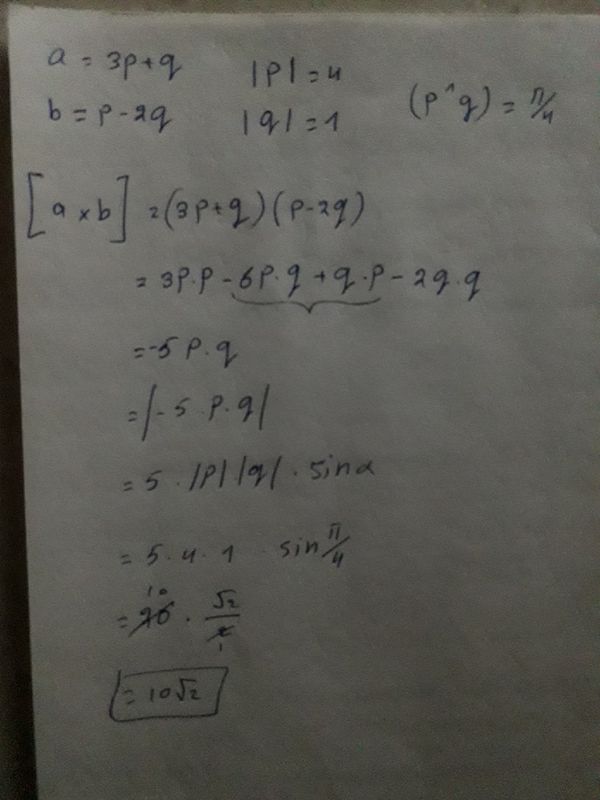 a = 3p+q |p| = 4
b = p-2q |q| = 1 (p^q) = π/4
[a x b] = (3p+q)(p-2q)
= 3p.p - 6p.q + q.p - 2q.q
= -5 p.q
= |-5.p.q|
= 5 . |p| |q| . sinα
= 5 . 4 . 1 . sin π/4
= 20 10 . √2/2 1
= 10√2